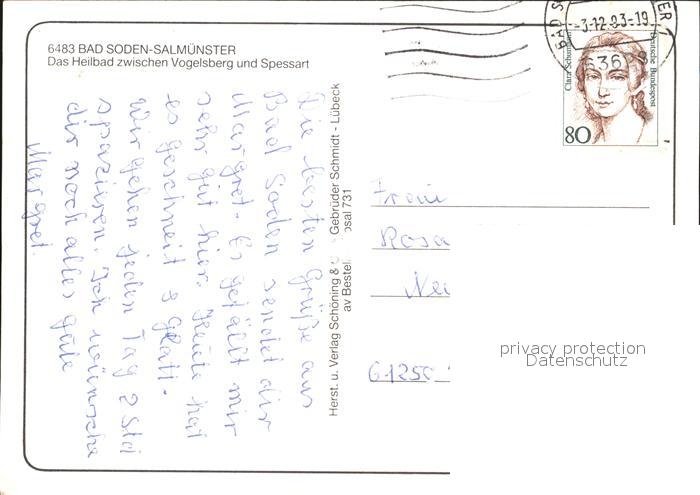 6483 BAD SODEN-SALMÜNSTER
Das Heilbad zwischen Vogelsberg und Spessart
Die besten Grüße aus
Bad Soden sendet dir
Margret. Es gefällt mir
sehr gut hier. Heute hat
es geschneit & glatt.
Wir gehen jeden Tag 2 Std
spazieren. Ich wünsche
dir noch alles gute
Margret.
Herst. u. Verlag Schöning &
Gebrüder Schmidt - Lübeck
av Bestel
osal 731
-3.12.93-19
Clara Schumann
Deutsche Bundespost
80
Frau
Rosa
privacy protection
Datenschutz